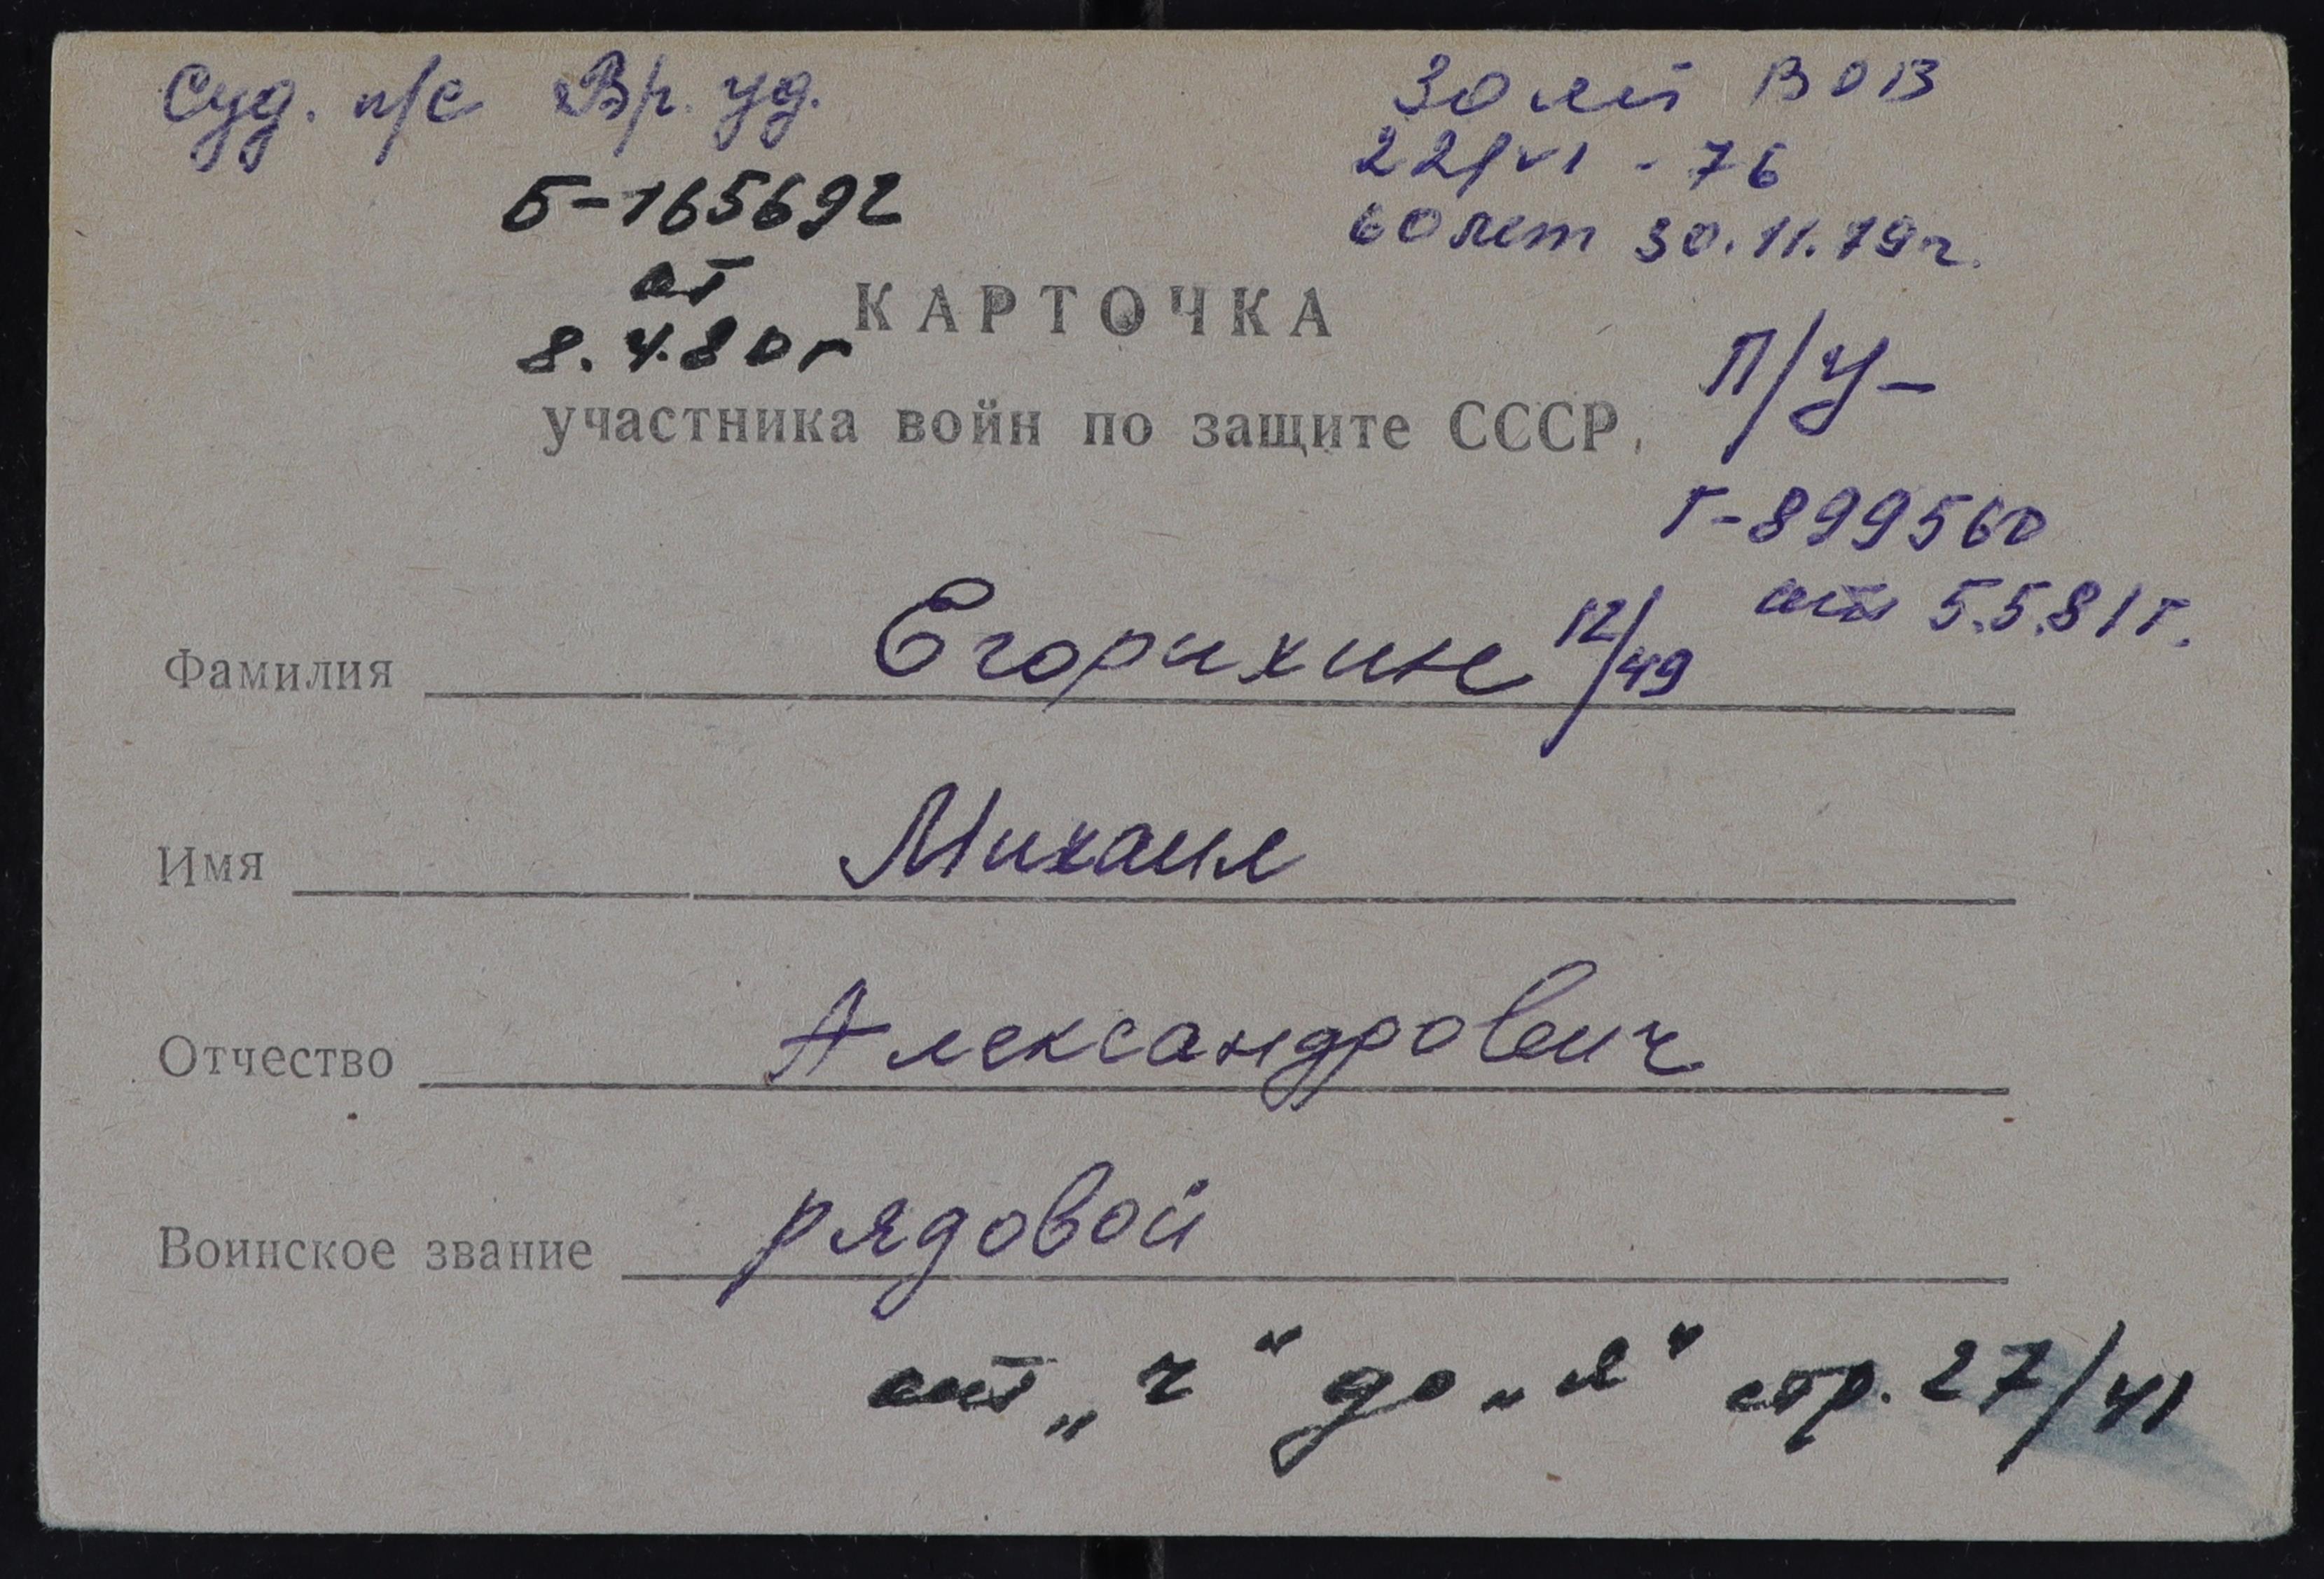 Суд. п/с Вр. уд.
30 лет ВОВ
22/VI - 76
60 лет 30.11.79г.
Б-165692
от
8.4.80г
КАРТОЧКА
участника войн по защите СССР
П/У-
Г-899560
от 5.5.81г.
Фамилия Егорихин 12/49
Имя Михаил
Отчество Александрович
Воинское звание рядовой
от „Ч“ до „Я“ стр. 27/41